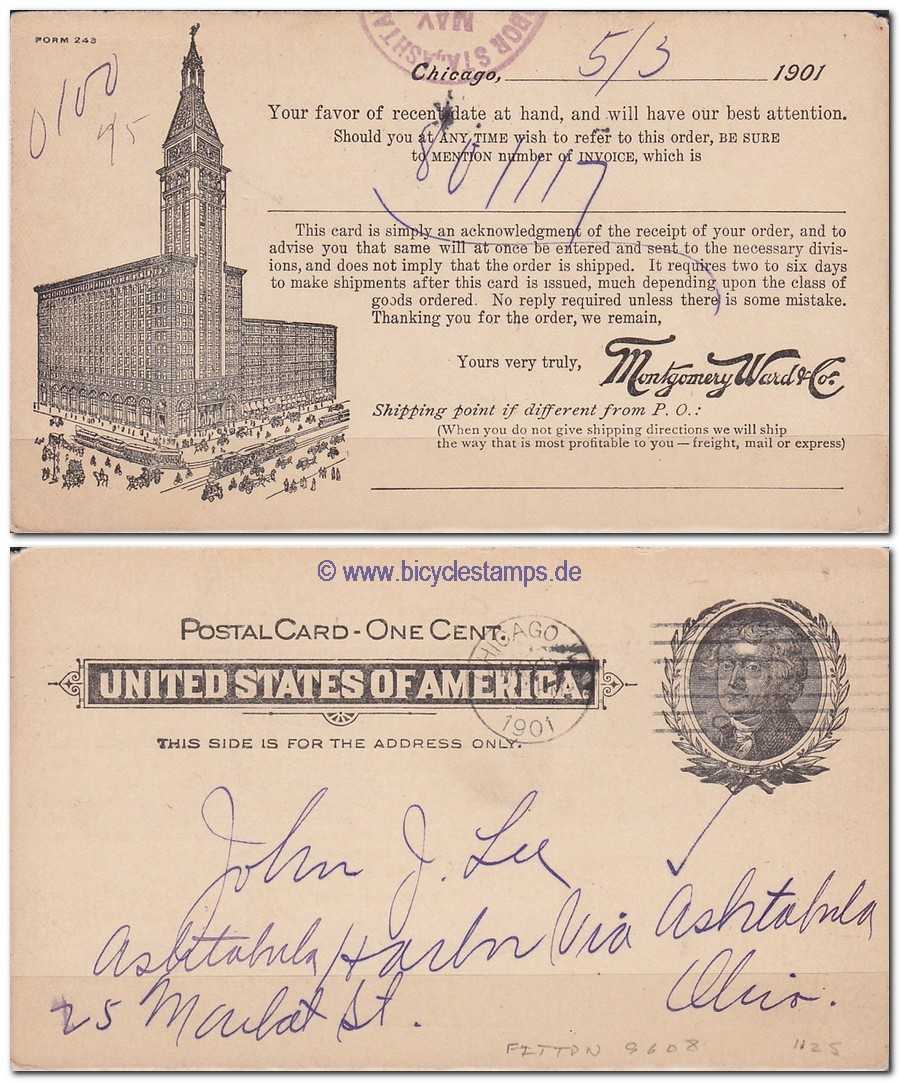 FORM 243
BOR STA., ASHTA
MAY
Chicago, 5/3 1901
0100
95
Your favor of recent date at hand, and will have our best attention.
Should you at ANY TIME wish to refer to this order, BE SURE
to MENTION number of INVOICE, which is
This card is simply an acknowledgment of the receipt of your order, and to
advise you that same will at once be entered and sent to the necessary divis-
ions, and does not imply that the order is shipped. It requires two to six days
to make shipments after this card is issued, much depending upon the class of
goods ordered. No reply required unless there is some mistake.
Thanking you for the order, we remain,
Yours very truly, Montgomery Ward & Co.
Shipping point if different from P. O.:
(When you do not give shipping directions we will ship
the way that is most profitable to you — freight, mail or express)
© www.bicyclestamps.de
POSTAL CARD - ONE CENT.
UNITED STATES OF AMERICA.
THIS SIDE IS FOR THE ADDRESS ONLY.
CHICAGO
1901
John J. Lee
Ashtabula Harbor Via Ashtabula
25 St. Ohio.
9608 1125